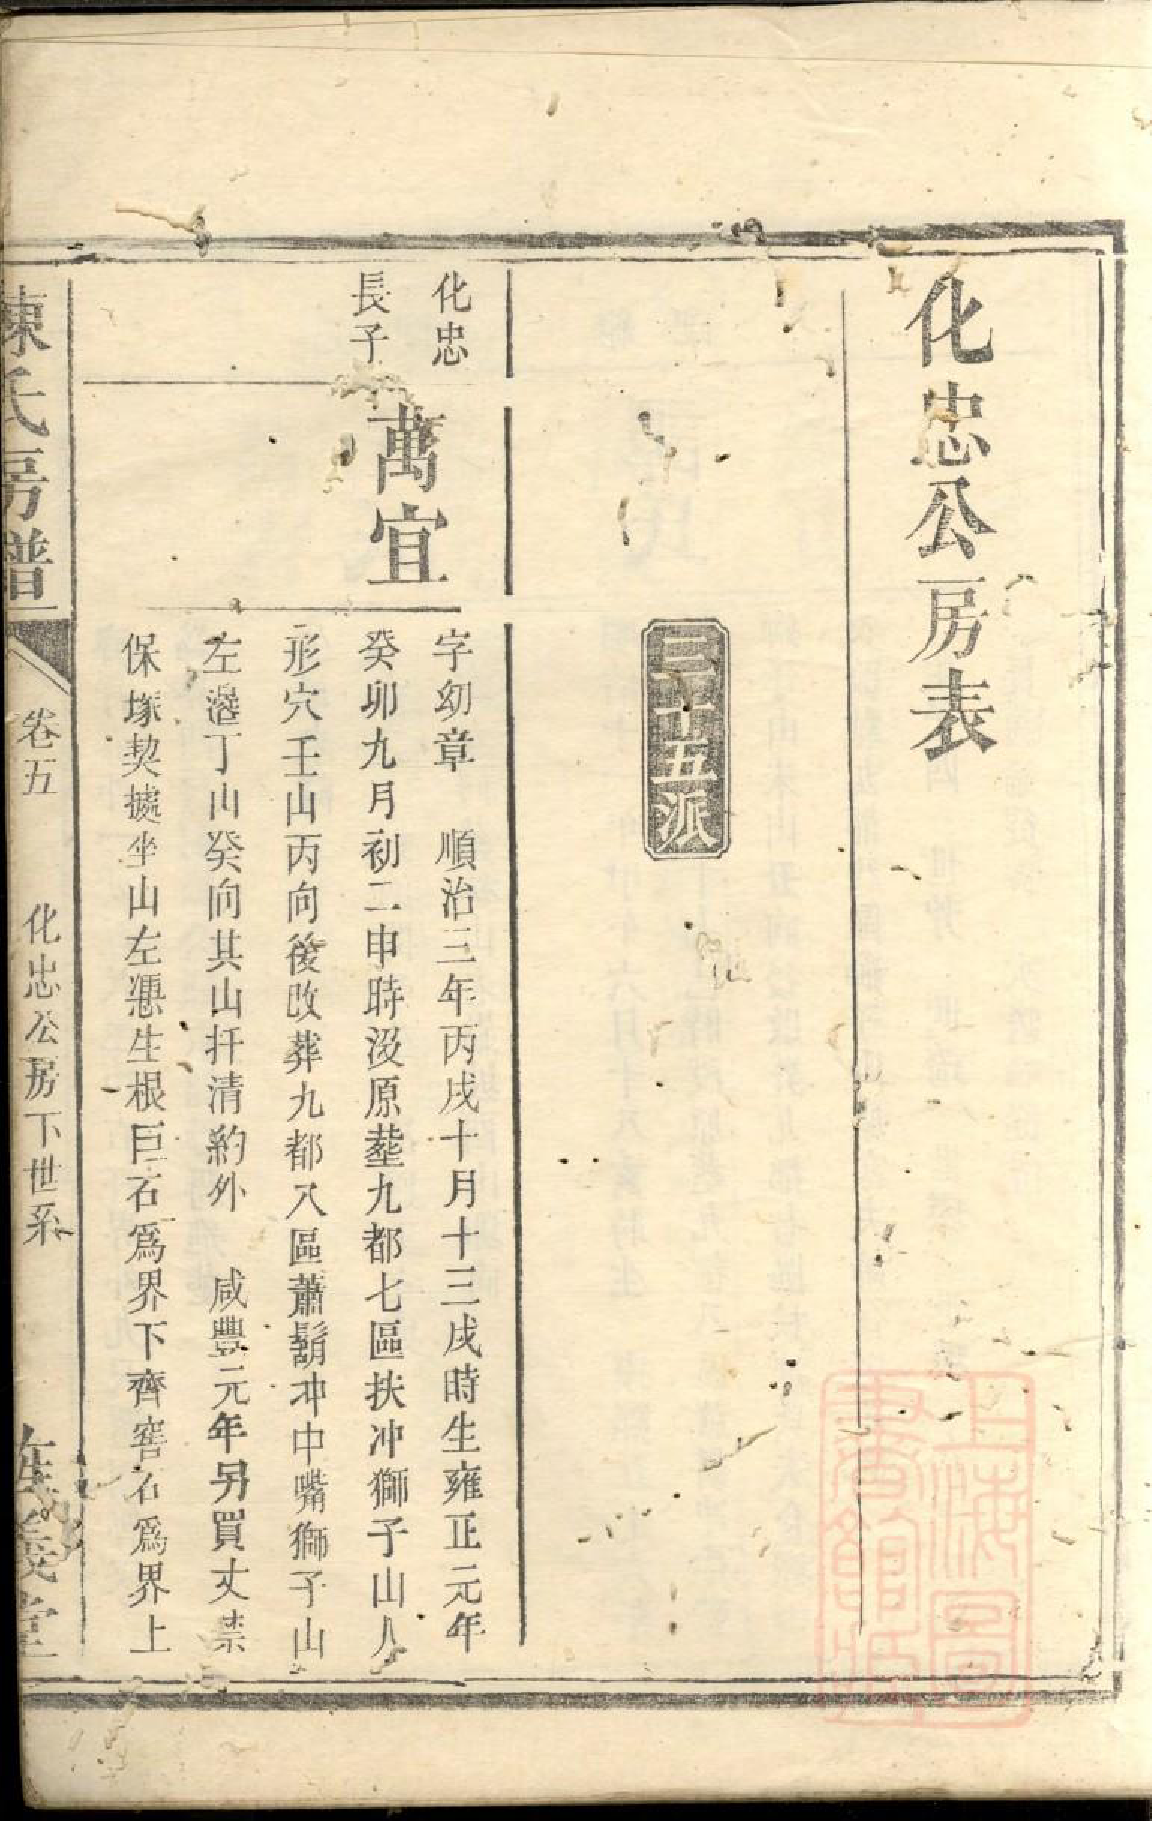 化忠公房表
三十五派
化忠
長子
萬宜
字幼章　順治三年丙戌十月十三戌時生雍正元年
癸卯九月初二申時没原塟九都七區扶冲獅子山人
形穴壬山丙向後改葬九都八區蕭鬍冲中嘴獅子山
左邉丁山癸向其山扦清約外　咸豐元年另買丈禁
保塚契據坐山左慿生根巨石爲界下齊窖石爲界上
陳氏房譜
卷五
化忠公房下世系
義堂
上海圖書館藏